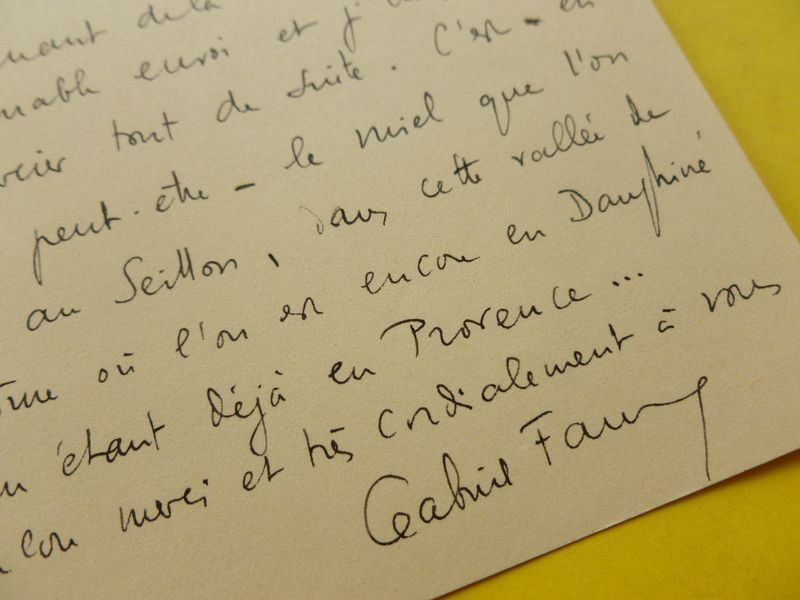 de la
envoi et j'
tout de suite. C'est - en
peut-être - le miel que l'on
au Seillon, dans cette vallée de
où l'on est encore en Dauphiné
étant déjà en Provence...
merci et très cordialement à vous
Gabriel